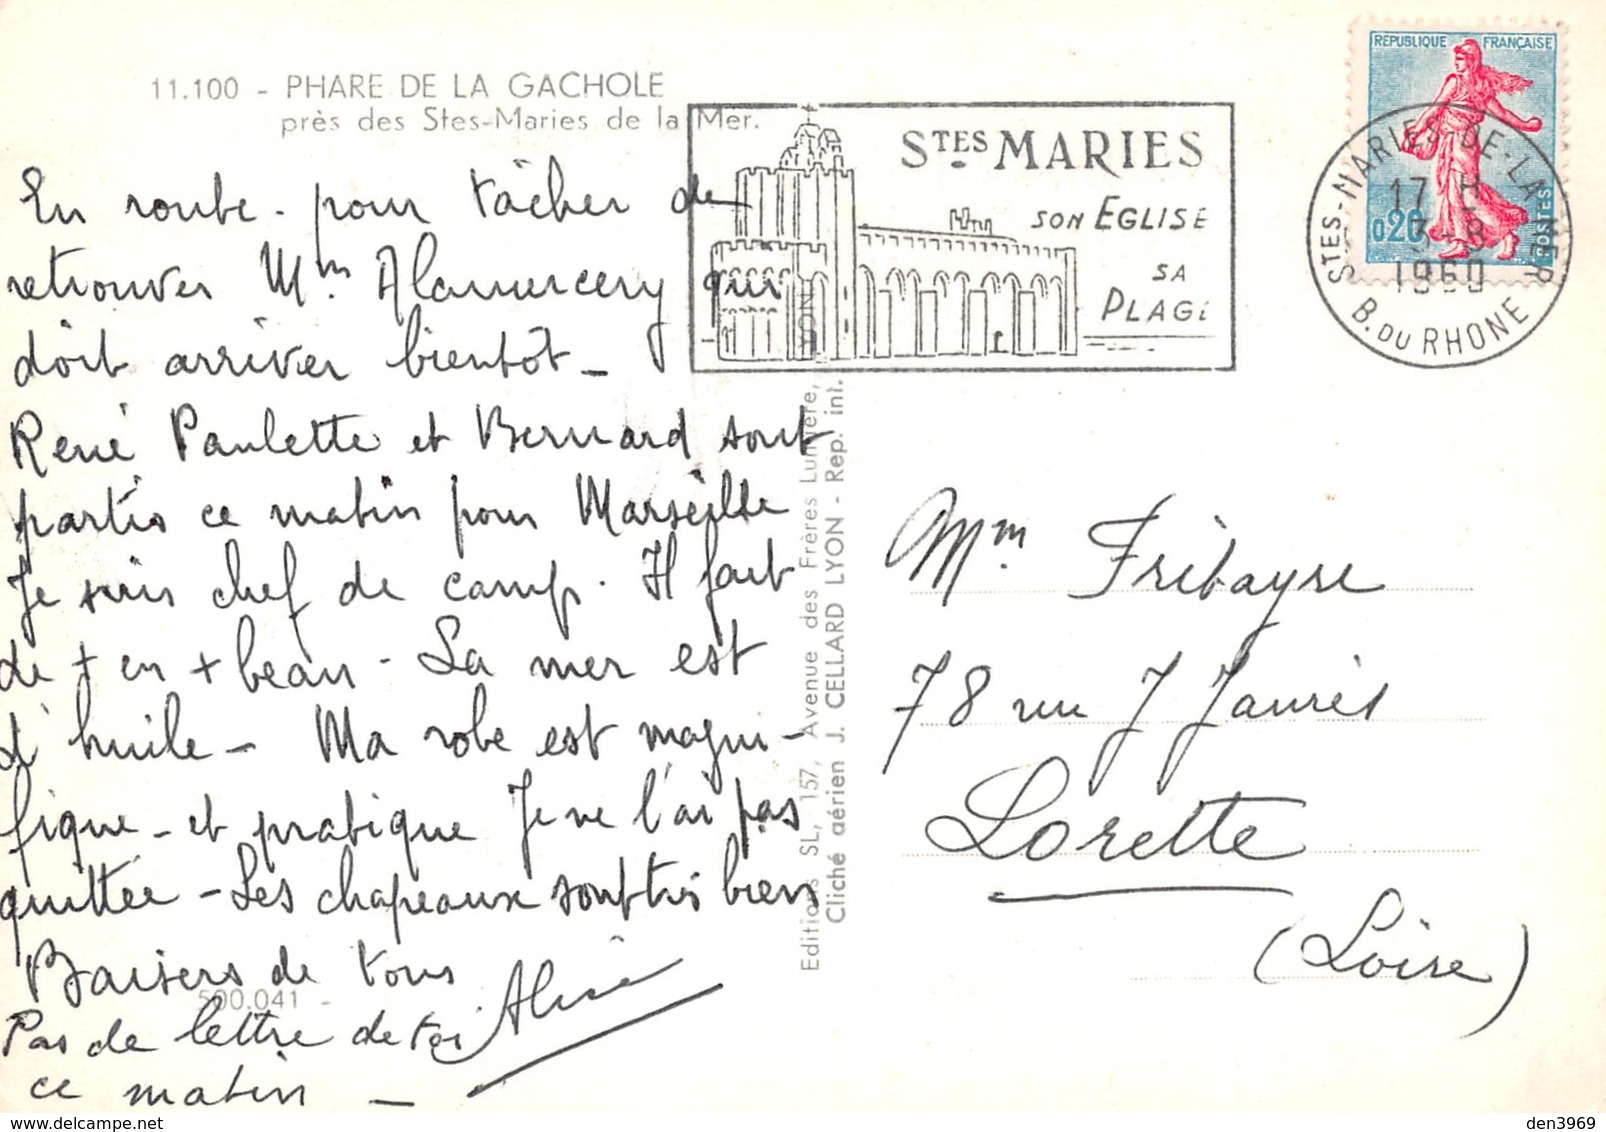 11.100 - PHARE DE LA GACHOLE
près des Stes-Maries de la Mer.
En route - pour tâcher de
retrouver Mm. Alamercery qui
doit arriver bientôt -
René Paulette et Bernard sont
partis ce matin pour Marseille
Je suis chef de camp. Il fait
de + en + beau - La mer est
d'huile - Ma robe est magni-
fique - et pratique Je ne l'ai pas
quittée - Les chapeaux sont très bien
Baisers de tous
500.041 -
Pas de lettre de toi
ce matin -
STES MARIES
SON EGLISE
SA
PLAGE
REPUBLIQUE FRANÇAISE
0,20
POSTES
STES-MARIES-DE-LA-MER
17 H
3-8
1960
B. DU RHONE
Editions SL, 157, Avenue des Frères Lumière, LYON
Cliché aérien J. CELLARD LYON - Rep. int.
Mm. Fribayre
78 rue J Jaurès
Lorette
(Loire)
den3969